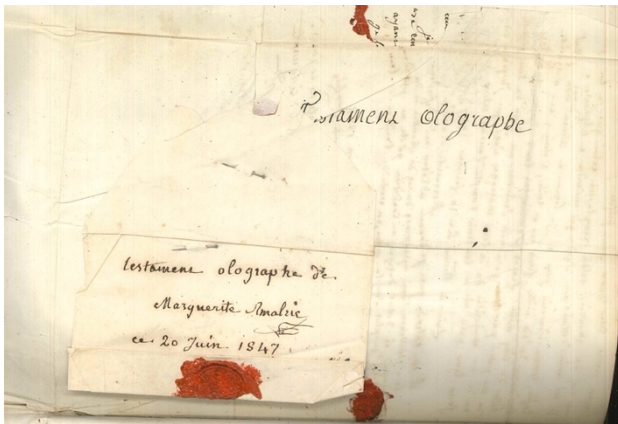 Testament olographe
testament olographe de
Marguerite Amalric
ce 20 Juin 1847